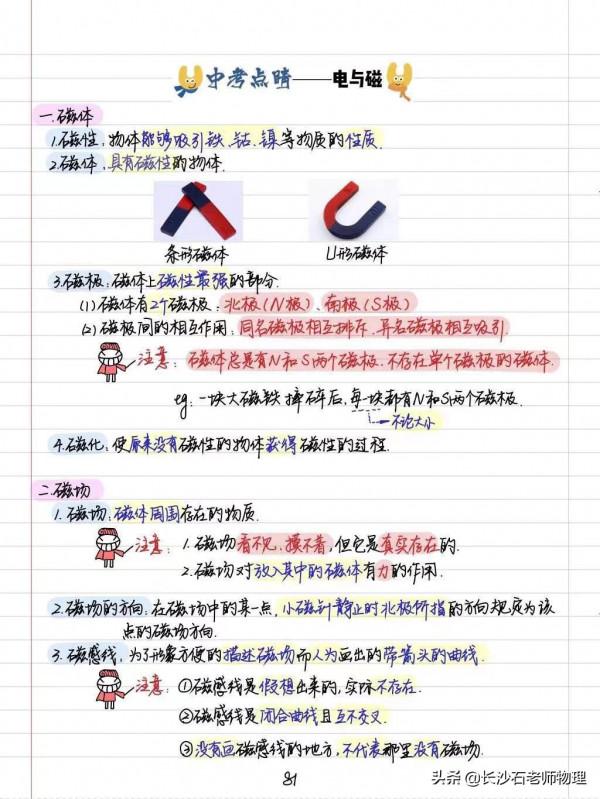 中考点睛——电与磁
一.磁体
1.磁性:物体能够吸引铁、钴、镍等物质的性质.
2.磁体:具有磁性的物体.
条形磁体
U形磁体
3.磁极:磁体上磁性最强的部分.
(1)磁体有2个磁极:北极(N极)、南极(S极)
(2)磁极间的相互作用:同名磁极相互排斥、异名磁极相互吸引.
注意:磁体总是有N和S两个磁极、不存在单个磁极的磁体.
eg:一块大磁铁摔碎后,每一块都有N和S两个磁极.
不论大小
4.磁化:使原来没有磁性的物体获得磁性的过程.
二.磁场
1.磁场:磁体周围存在的物质.
注意:1.磁场看不见、摸不着,但它是真实存在的.
2.磁场对放入其中的磁体有力的作用.
2.磁场的方向:在磁场中的某一点,小磁针静止时北极所指的方向规定为该
点的磁场方向.
3.磁感线:为了形象方便的描述磁场而人为画出的带箭头的曲线.
注意:①磁感线是假想出来的,实际不存在.
②磁感线是闭合曲线且互不交叉.
③没有画磁感线的地方,不代表那里没有磁场.
81
头条@长沙石老师物理